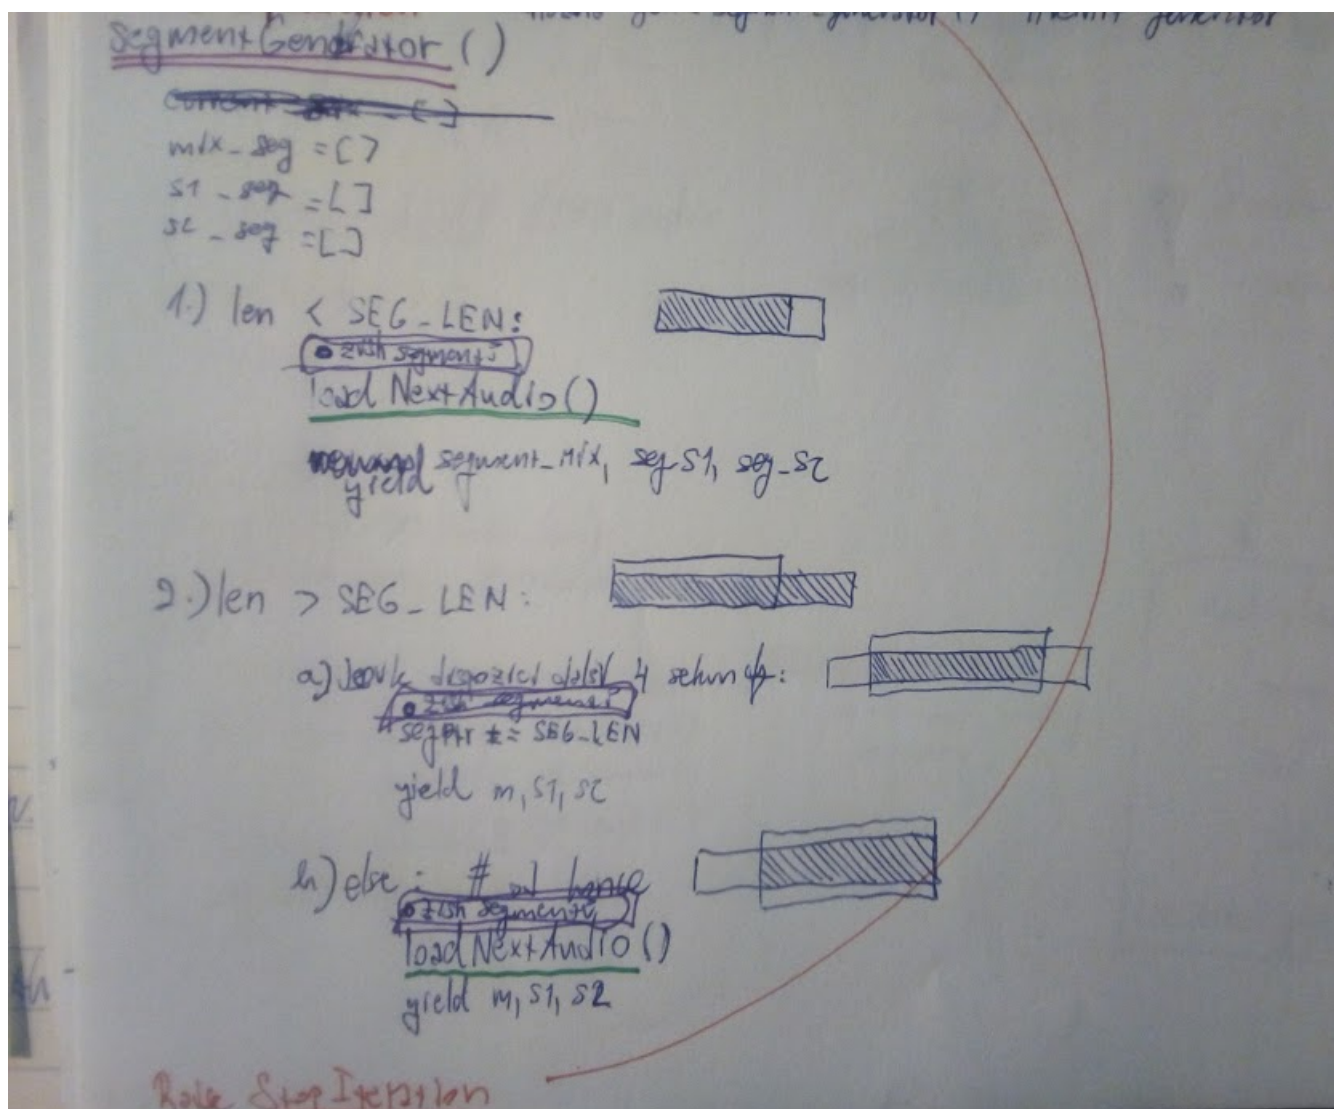 SegmentGenerator ()
mix_seg = []
s1_seg = []
s2_seg = []
1.) len < SEG_LEN:
• zisk segmentů
loadNextAudio()
yield segment_mix, seg_S1, seg_S2
2.) len > SEG_LEN:
a) dispozici další 4 sekundy:
• zisk segmentů
segPtr += SEG_LEN
yield m, s1, s2
b) else: # od konce
• zisk segmentů
loadNextAudio()
yield m, s1, s2
Raise StopIteration